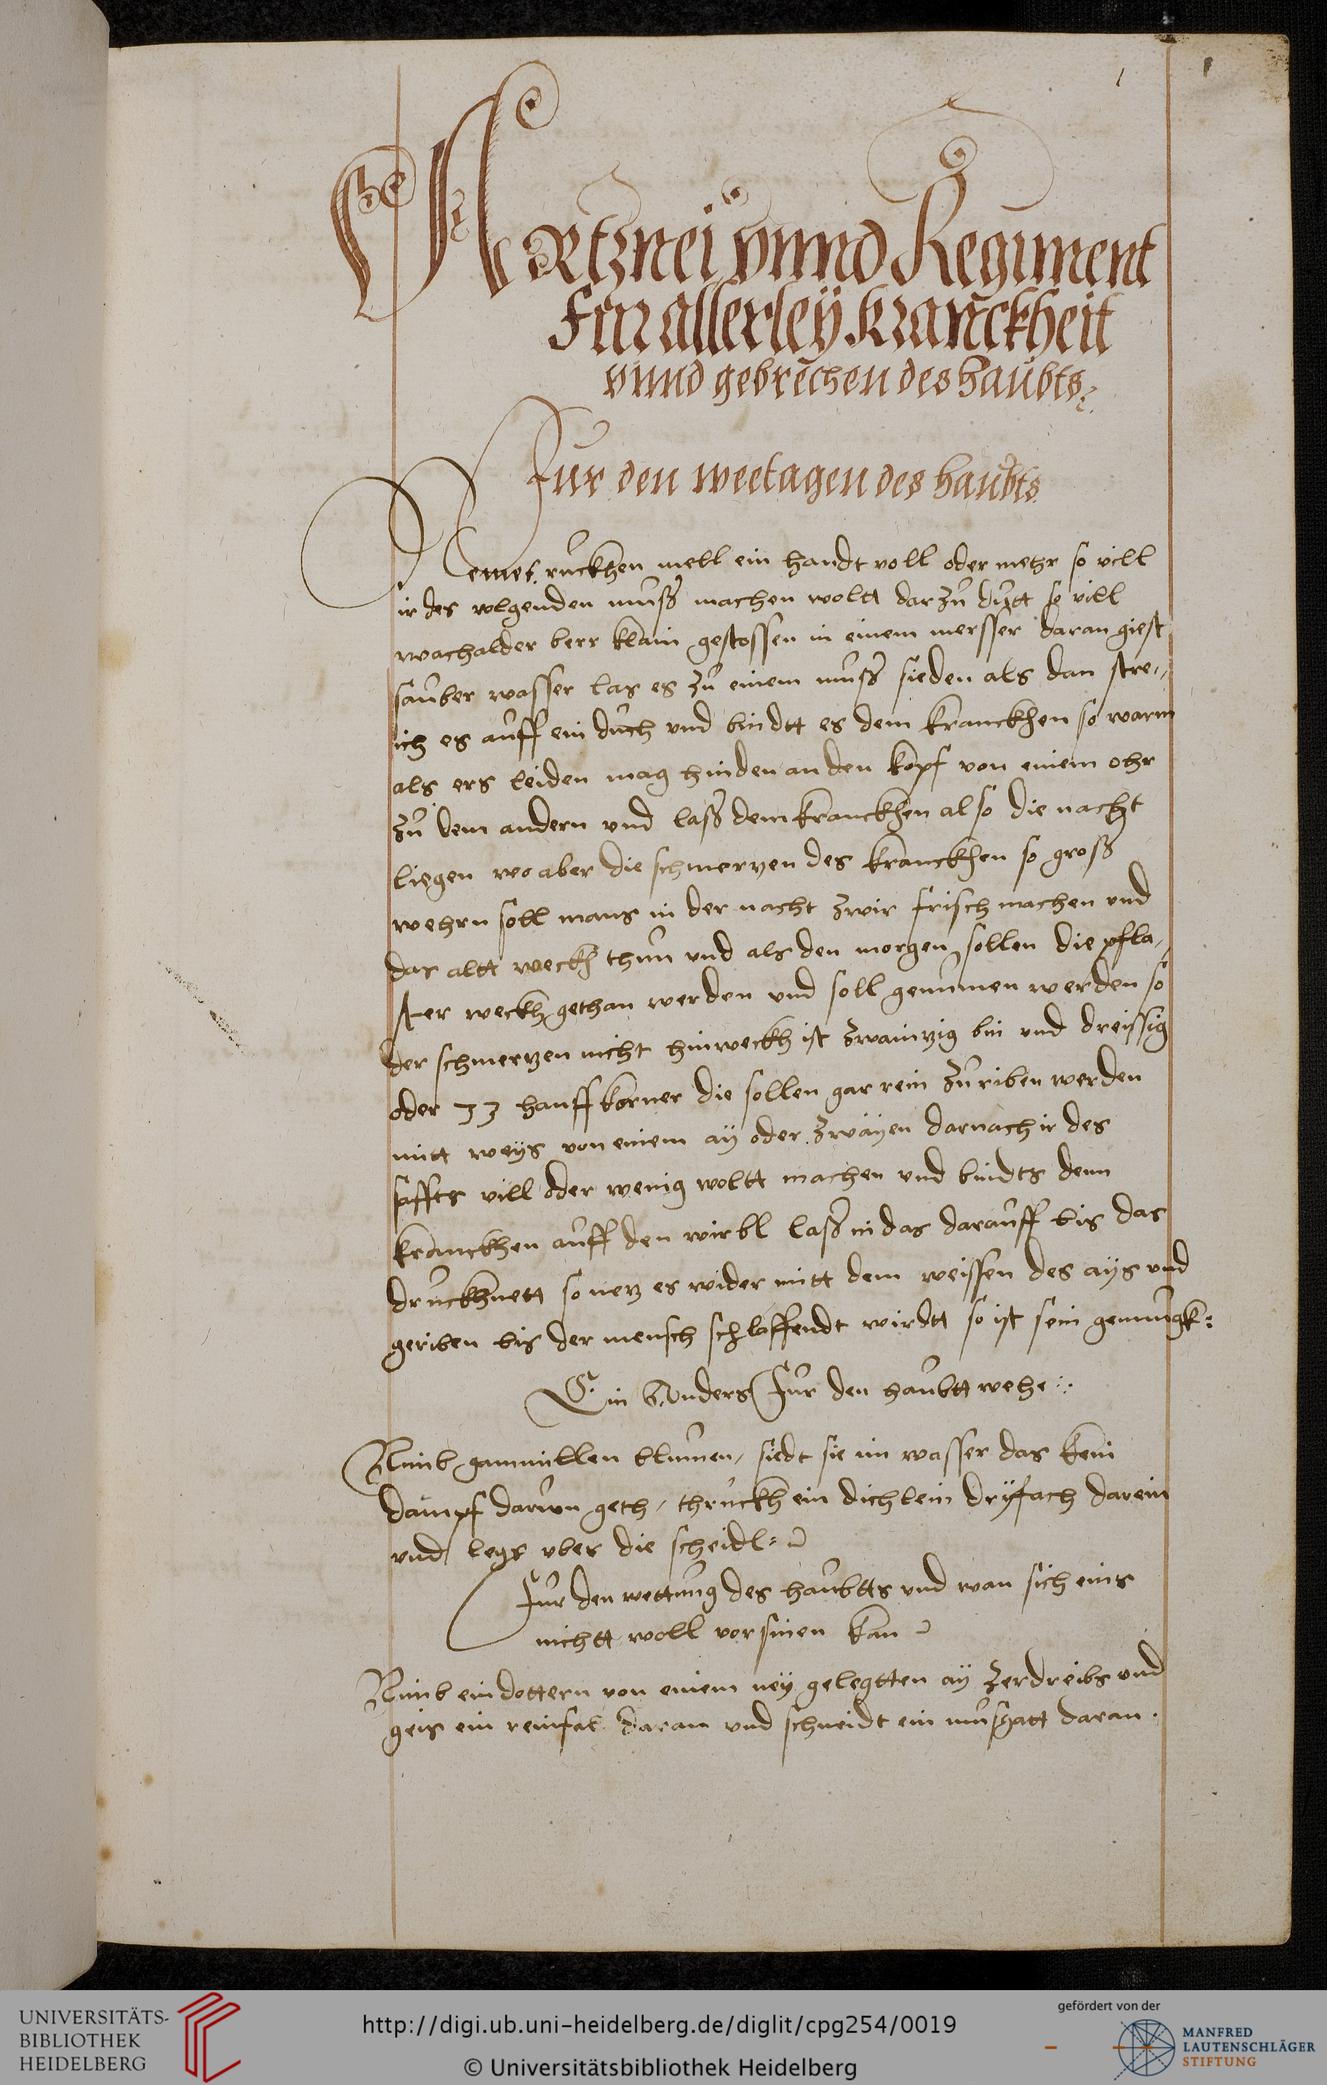 1
Artznei vnnd Regiment
Fur allerleÿ kranckheit
vnnd gebrechen des haubts
Fur den weetagen des haubts
Nemet ruckhen mell ein handt voll oder mehr so vill
ir des volgenden muß machen woltt darzu dutt so vill
wachalder berr klain gestossen in einem mersser daran giest
sauber wasser las es zu einem muß sieden als dan stre-
ich es auff ein duch vnd bindtt es dem kranckhen so warm
als ers leiden mag hinden an den kopf von einem ohr
zu dem andern vnd laß dem kranckhen also die nacht
liegen wo aber die schmerzen des kranckhen so groß
wehrn soll mans in der nacht zwir frisch machen vnd
das altt weckh thun vnd als den morgen sollen die pfla-
ster weckh gethan werden vnd soll genummen werden so
der schmertzen nicht hinweckh ist zwainzig bin vnd dreissig
oder 33 hanff korner die sollen gar rein zuriben werden
mitt weys von einem aÿ oder zwäyen darnach ir des
saffts vill oder wenig woltt machen vnd bindts dem
kranckhen auff den wirbl laß in das darauff bis das
druckhnett so netz es wider mitt dem weissen des ays vnd
geriben bis der mensch schlaffendt wirdtt so ist sein genungk
Ein Anders Fur den haubtt wehe
Nimb gammillen blumen, siedt sie im wasser das kein
dampf daruon geth, thruckh ein dichlein dryfach darein
vnd legs vber die scheidl
Fur den wettung des haubtts vnd wan sich eins
nichtt woll versinen kan
Nimb ein dottern von einem neÿ gelegtten aÿ zerdreibs vnd
geis ein reinfal daran vnd schneidt ein musgatt daran.
UNIVERSITÄTS-
BIBLIOTHEK
HEIDELBERG
http://digi.ub.uni-heidelberg.de/diglit/cpg254/0019
© Universitätsbibliothek Heidelberg
gefördert von der
MANFRED
LAUTENSCHLÄGER
STIFTUNG